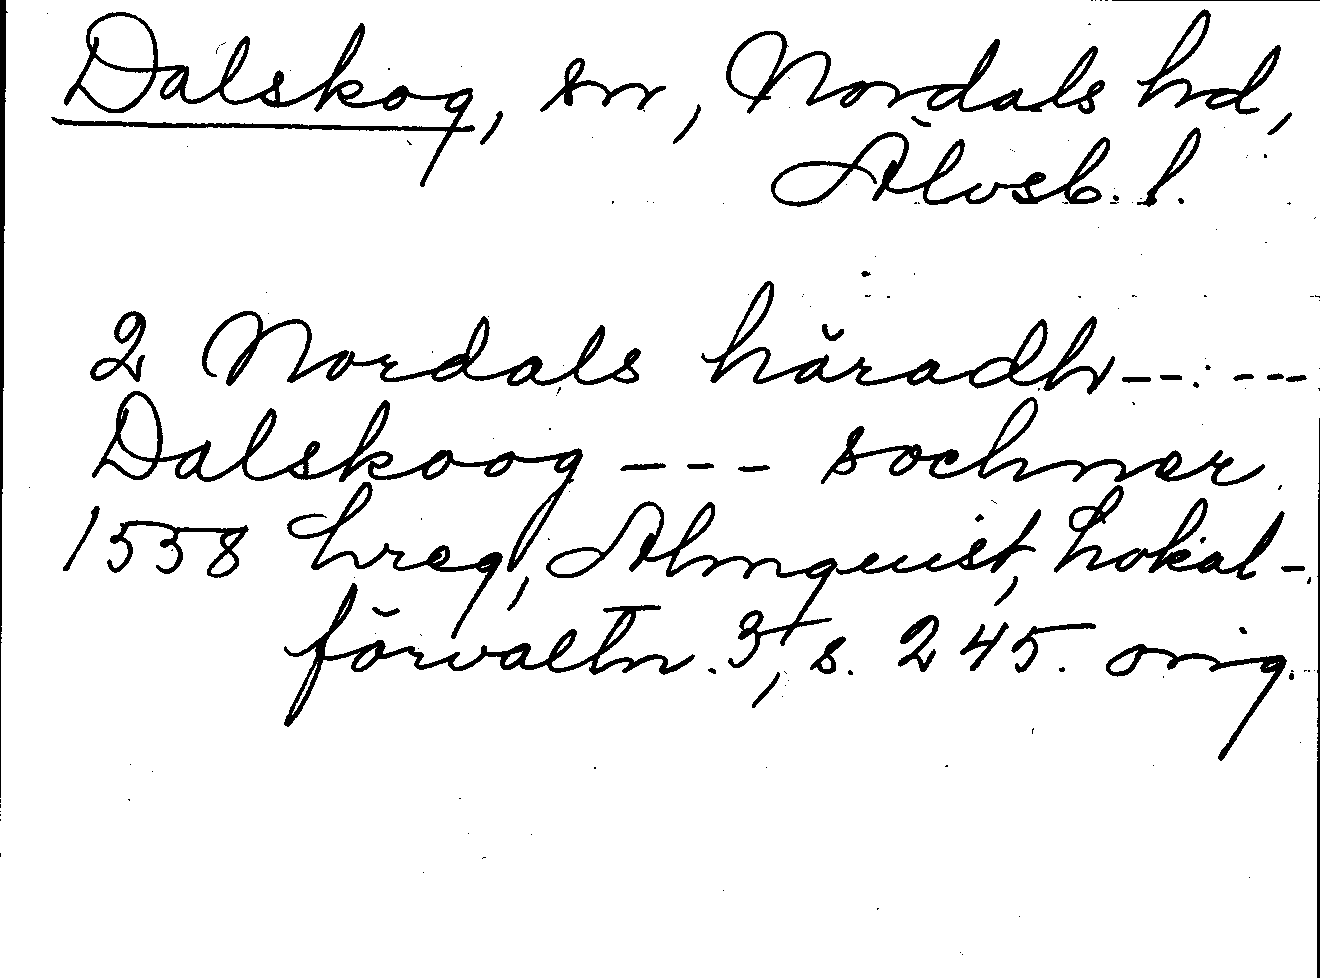 Dalskog, sn, Nordals hd,
Älvsb. l.
2 Nordals häradh-- ---
Dalskoog --- sochner
1558 Lreg, Almquist, Lokal-
förvaltn. 3, s. 245. orig.